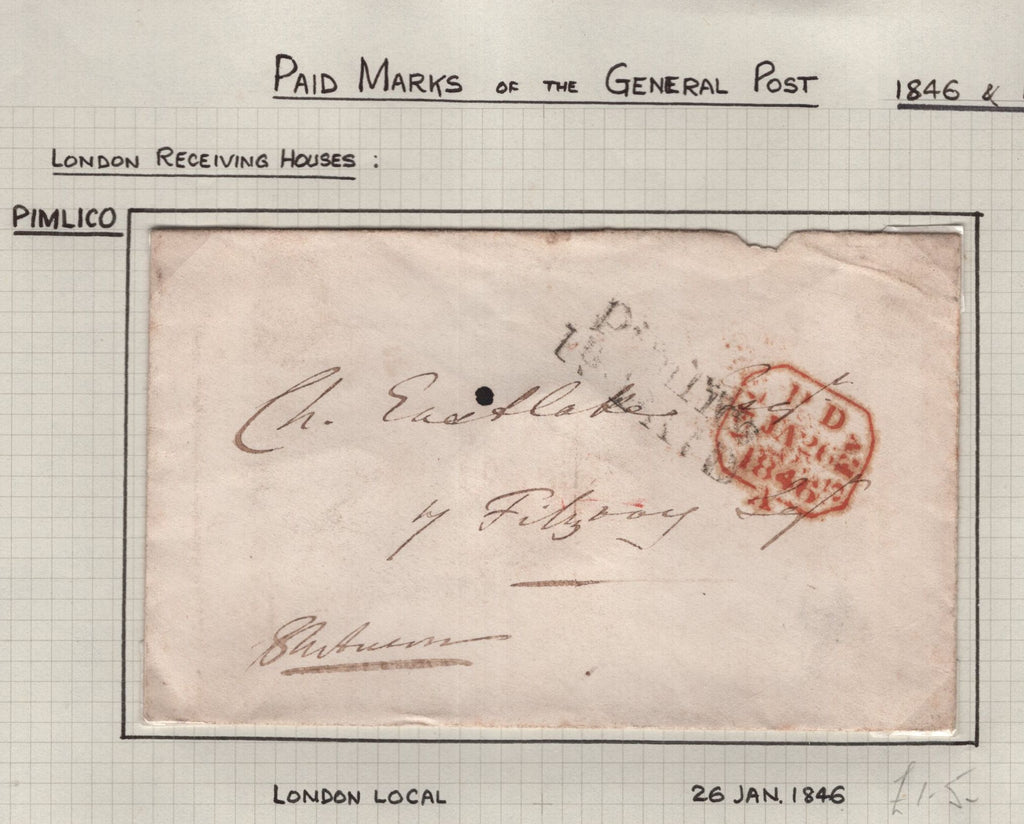 PAID MARKS OF THE GENERAL POST 1846 &
LONDON RECEIVING HOUSES :
PIMLICO
Pimlico
1D PAID
Ch. Eastlake Esqr
7 Fitzroy Sqr
PD
JA 26
1846
A
LONDON LOCAL 26 JAN. 1846 £1.5-